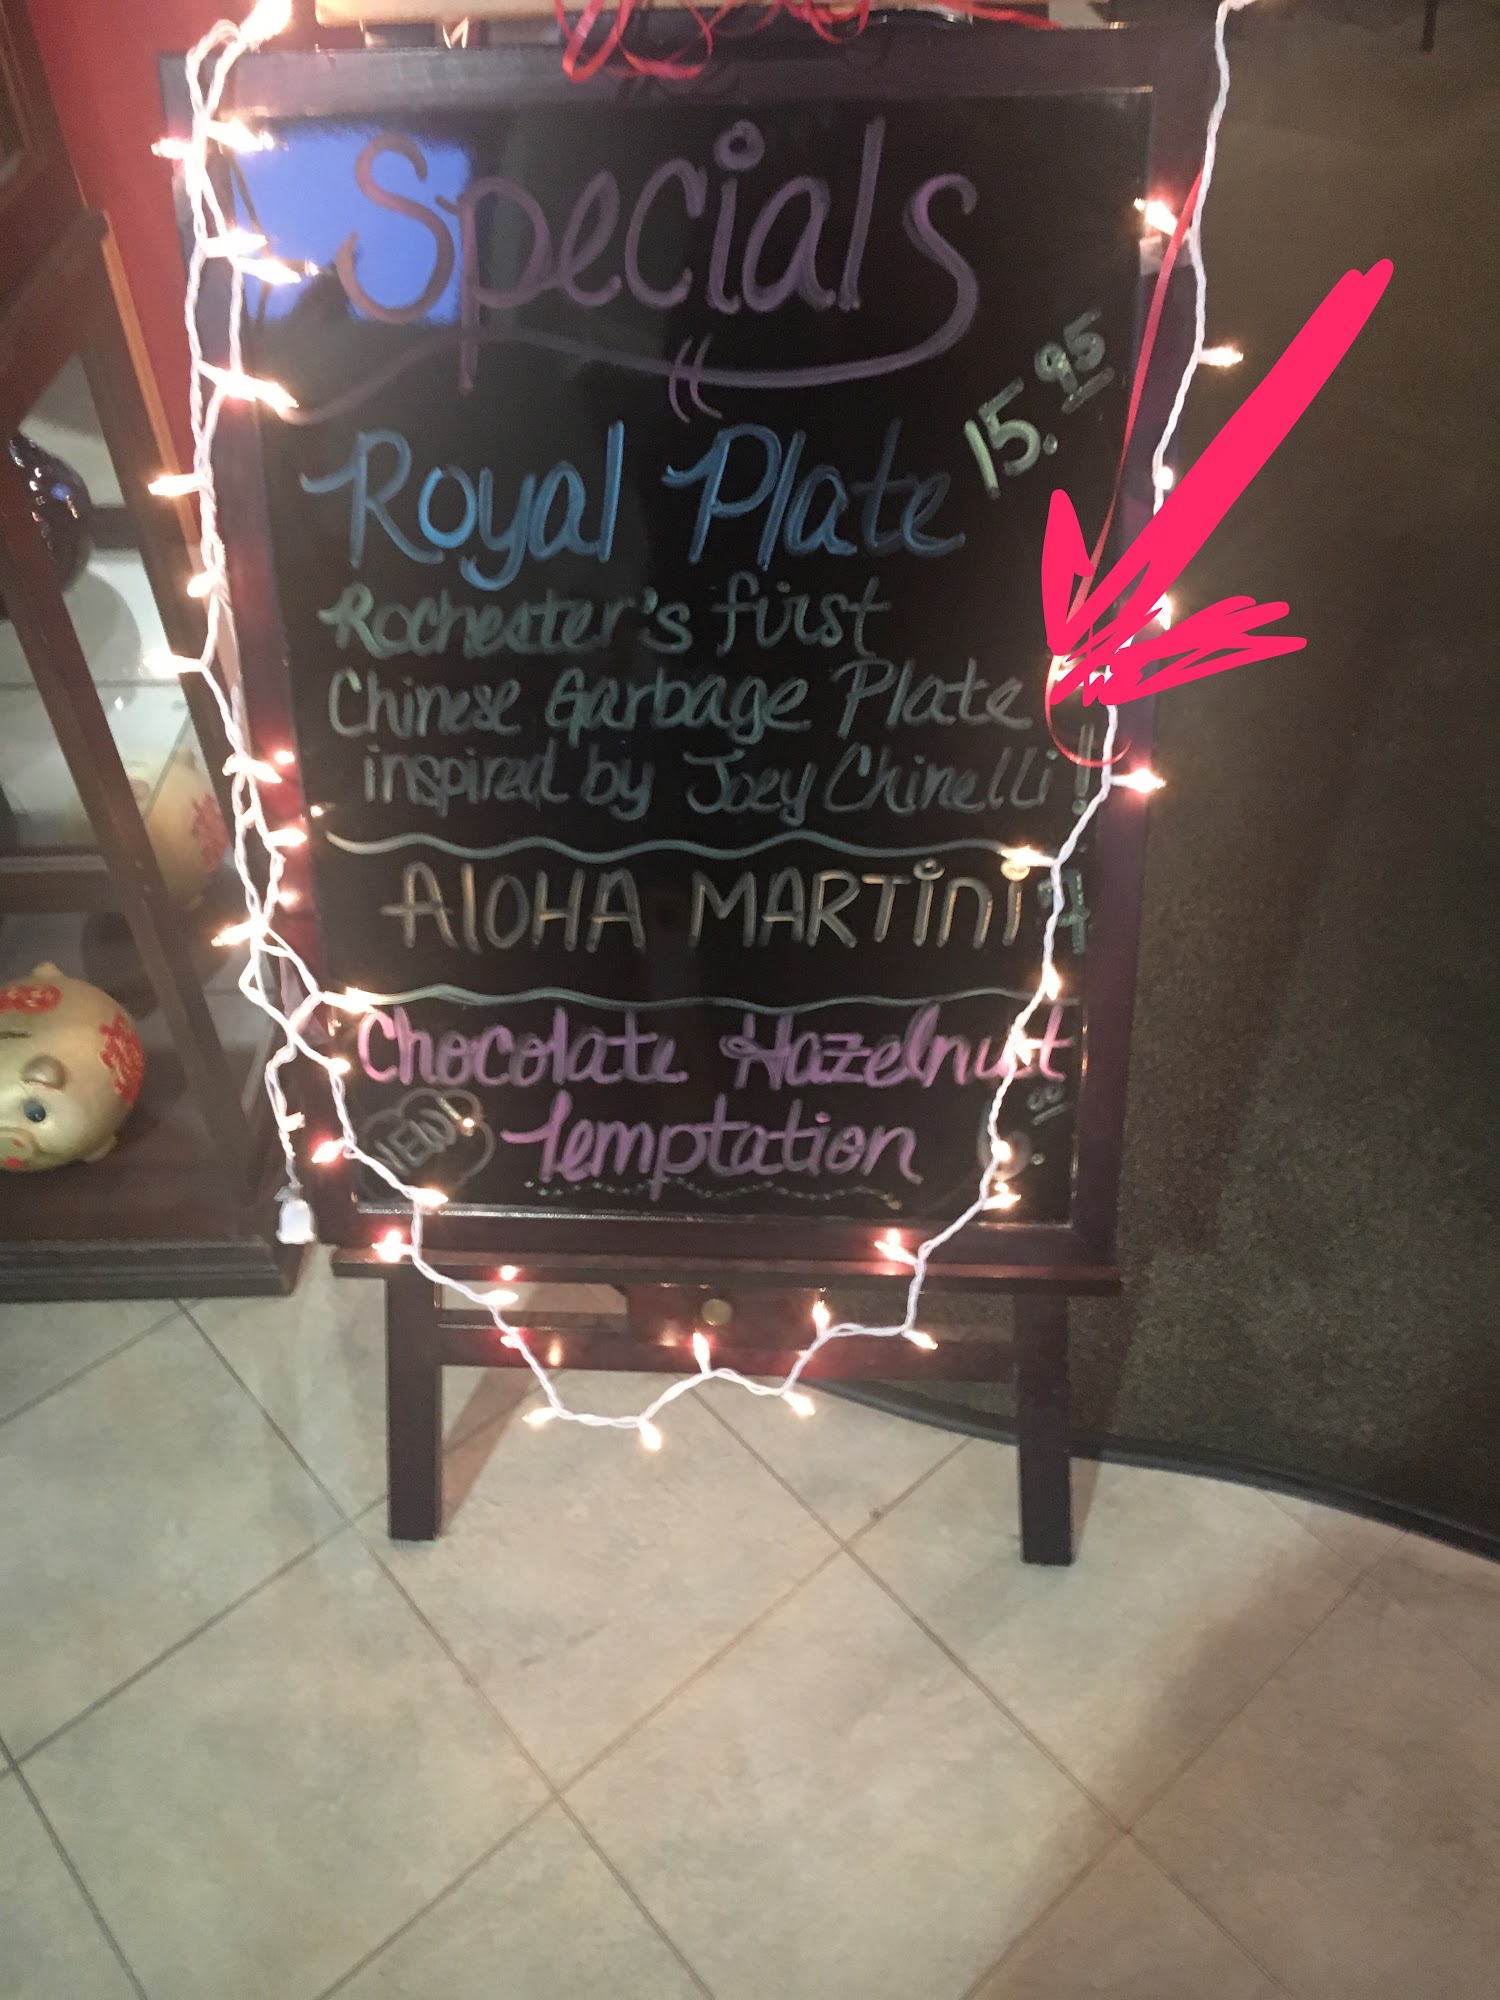 Specials
Royal Plate 15.95
Rochester's first
Chinese Garbage Plate
inspired by Joey Chinelli!!
AlOHA MARTini
Chocolate Hazelnut
NEW! Temptation